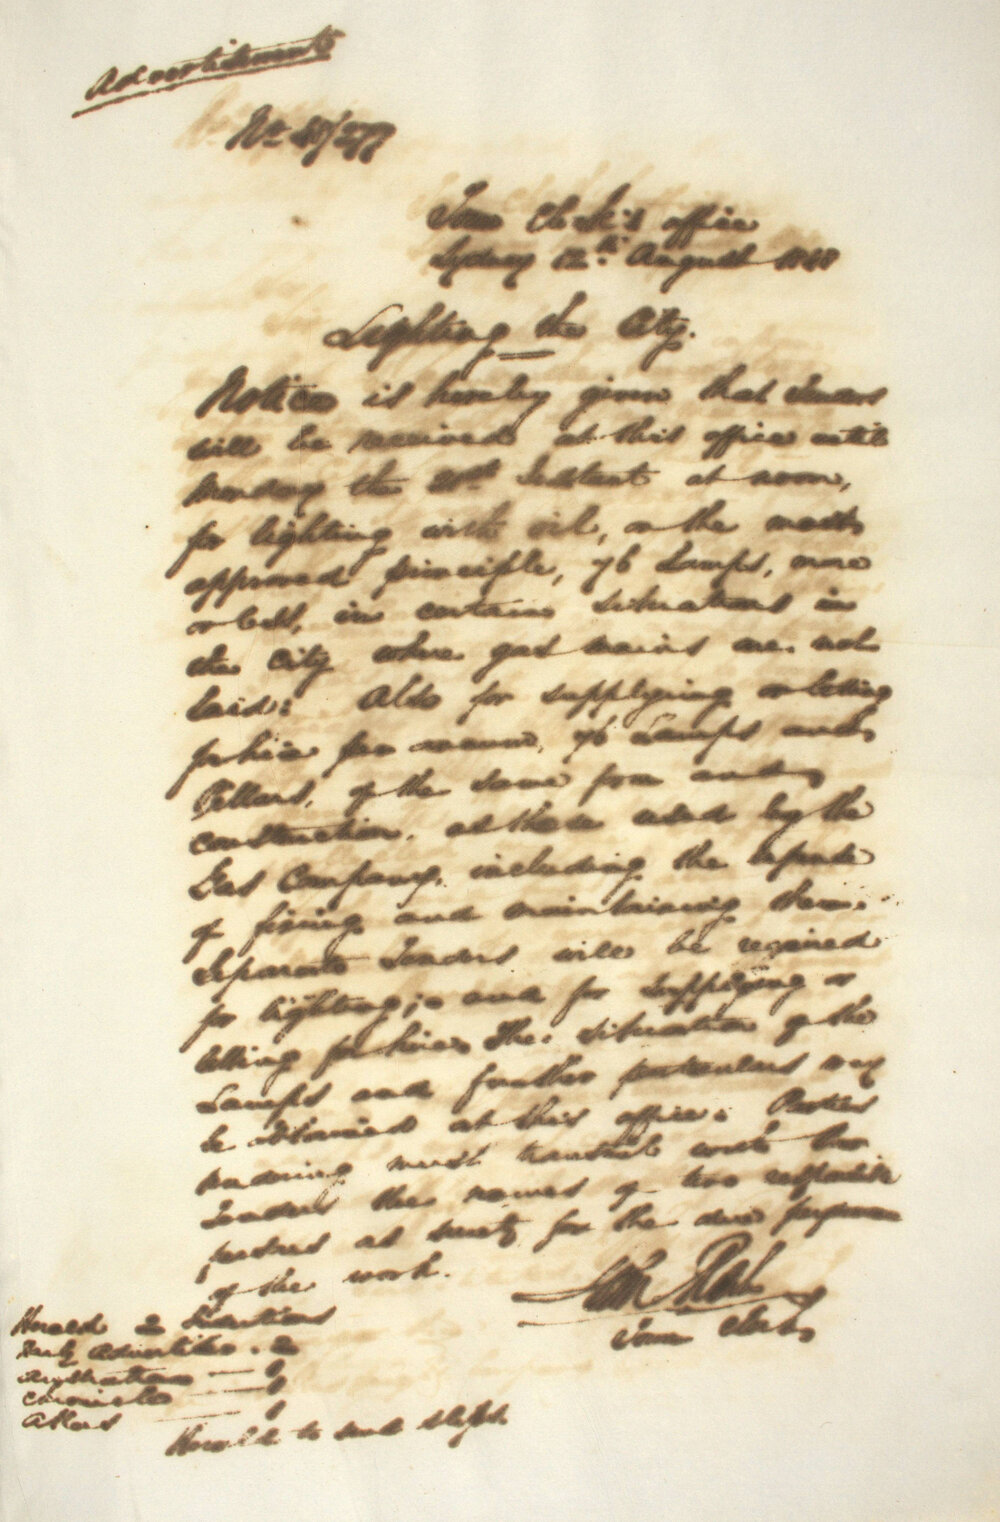 Advertisement
No
Town Clerk's office
Sydney 12th August 1848
Lighting the City.
Notice is hereby given that Tenders
will be received at this office until
Monday the 21st Instant at noon,
for lighting with oil, on the most
approved principle, 76 Lamps, more
or less, in certain situations in
the City where gas mains are not
laid: Also for supplying or letting
for hire per annum, 76 Lamps and
Pillars, of the same form and
construction, as those used by the
Gas Company, including the expense
of fixing and maintaining them.
Separate Tenders will be required
for lighting; and for supplying or
letting for hire. The situation of the
Lamps and further particulars may
be obtained at this office: Parties
tendering must transmit with their
Tenders the names of two responsible
persons as surety for the due performance
of the work.
Town Clerk
Herald 2 Insertions
Daily Advertiser . 2
Australian — 1
Chronicle — 1
Atlas — 1
Herald to send slips.